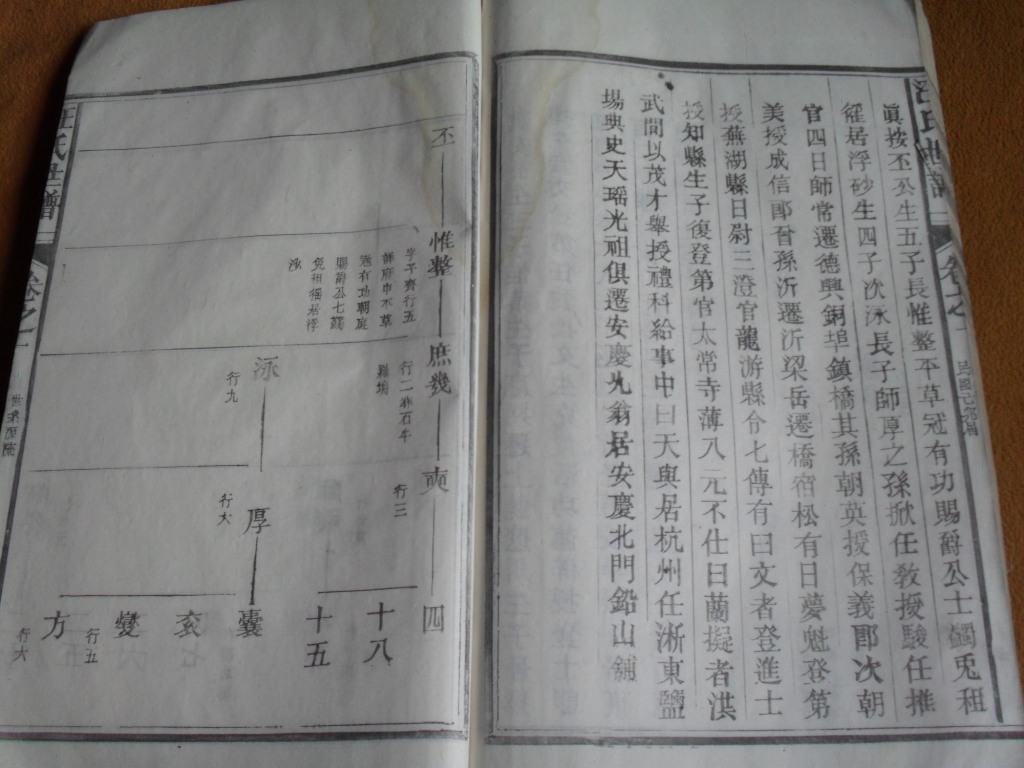 汪氏世譜
卷之一
眞按丕公生五子長惟整平草冠有功賜爵公士蠲免租
徭居浮砂生四子次泳長子師厚之孫掀任敎授駿任推
官四日師常遷德興銅埠鎮橋其孫朝英授保義郎次朝
美授成信郎晉孫沂遷沂梁岳遷橋宿松有日夢魁登第
授蕪湖縣日尉三澄官龍游縣令七傳有曰文者登進士
授知縣生子復登第官太常寺薄八元不仕日蘭擬者洪
武間以茂才舉授禮科給事中曰天與居杭州任淅東鹽
場典史天瑤光祖俱遷安慶光翁居安慶北門鉛山舖
丕
惟整
字子齊行五
庶幾
行二
泳
行九
奭
行三
厚
行六
四
十八
十五
囊
玄
燮
行五
方
行六
汪氏世譜
卷之一